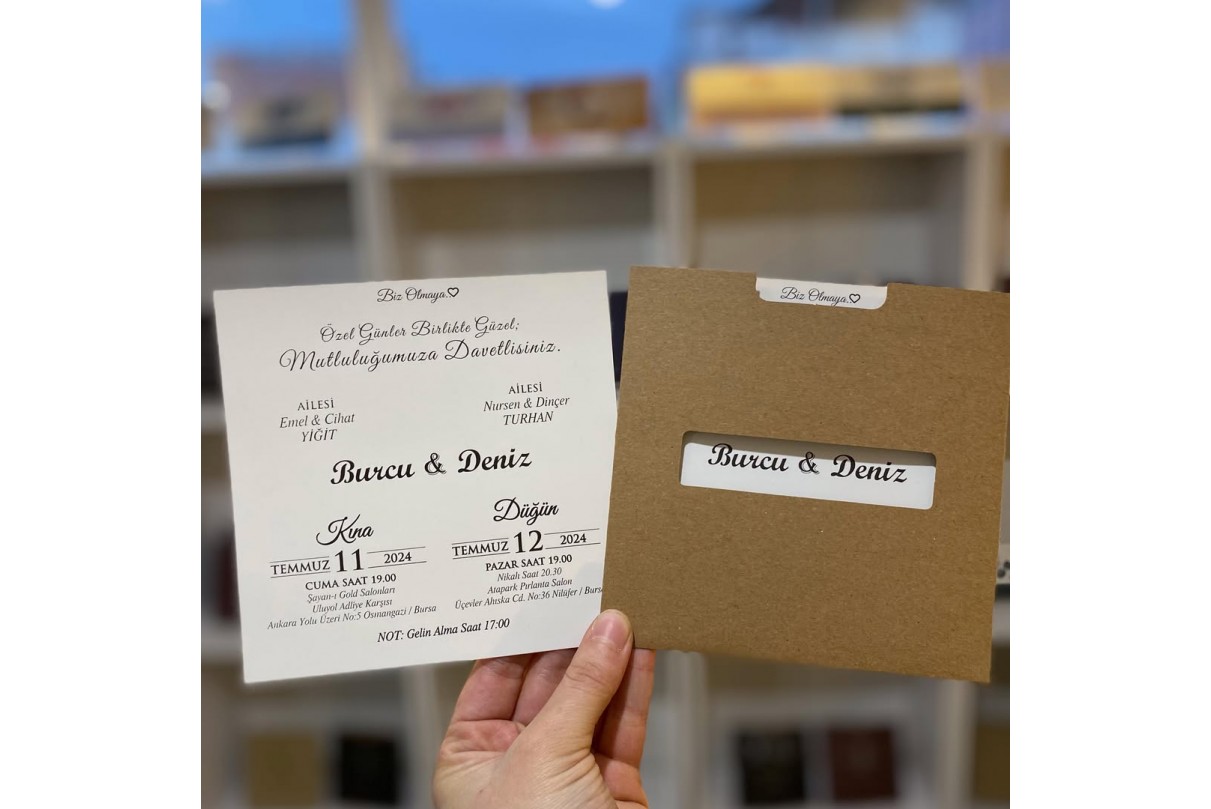 Biz Olmaya.♡
Özel Günler Birlikte Güzel;
Mutluluğumuza Davetlisiniz.
AİLESİ
Emel & Cihat
YİĞİT
AİLESİ
Nursen & Dinçer
TURHAN
Burcu & Deniz
Kına
TEMMUZ 11 2024
CUMA SAAT 19.00
Şayan-ı Gold Salonları
Uluyol Adliye Karşısı
Ankara Yolu Üzeri No:5 Osmangazi / Bursa
Düğün
TEMMUZ 12 2024
PAZAR SAAT 19.00
Nikah Saat 20.30
Atapark Pırlanta Salon
Üçevler Ahıska Cd. No:36 Nilüfer / Bursa
NOT: Gelin Alma Saat 17:00
Biz Olmaya.♡
Burcu & Deniz